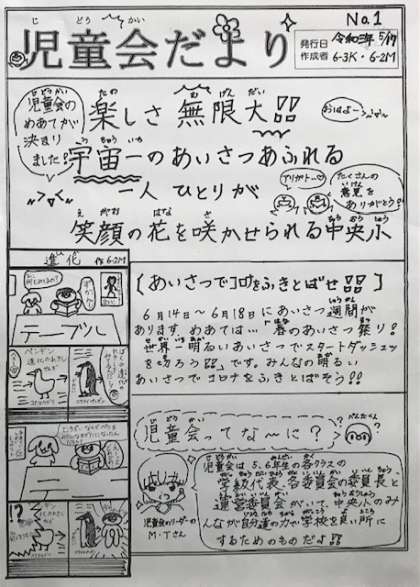 No.1
じどうかい
児童会だより
発行日 令和3年 5/17
作成者 6-3K・6-2M
児童会の
めあてが
決まり
ました!
おはよー
楽しさ 無限大!!
宇宙一のあいさつあふれる
アリガトー♡
たくさんの
意見を
ありがとう!
一人 ひとりが
笑顔の花を咲かせられる中央小
進化 作 6-2M
テーブル
ペンギン
[あいさつでコロナをふきとばせ!!]
6月14日〜6月18日にあいさつ週間が
あります。めあては…「春のあいさつ祭り!
世界一明るいあいさつでスタートダッシュ
を切ろう!!」です。みんなの明るい
あいさつでコロナをふきとばそう!!
児童会ってな〜に?
児童会は5、6年生の各クラスの
学級代表、各委員会の委員長と
運営委員会がいて、中央小のみ
んなが自分達の力で学校を良い所に
するためのものだよ!!
児童会のリーダーの
M・Tさん